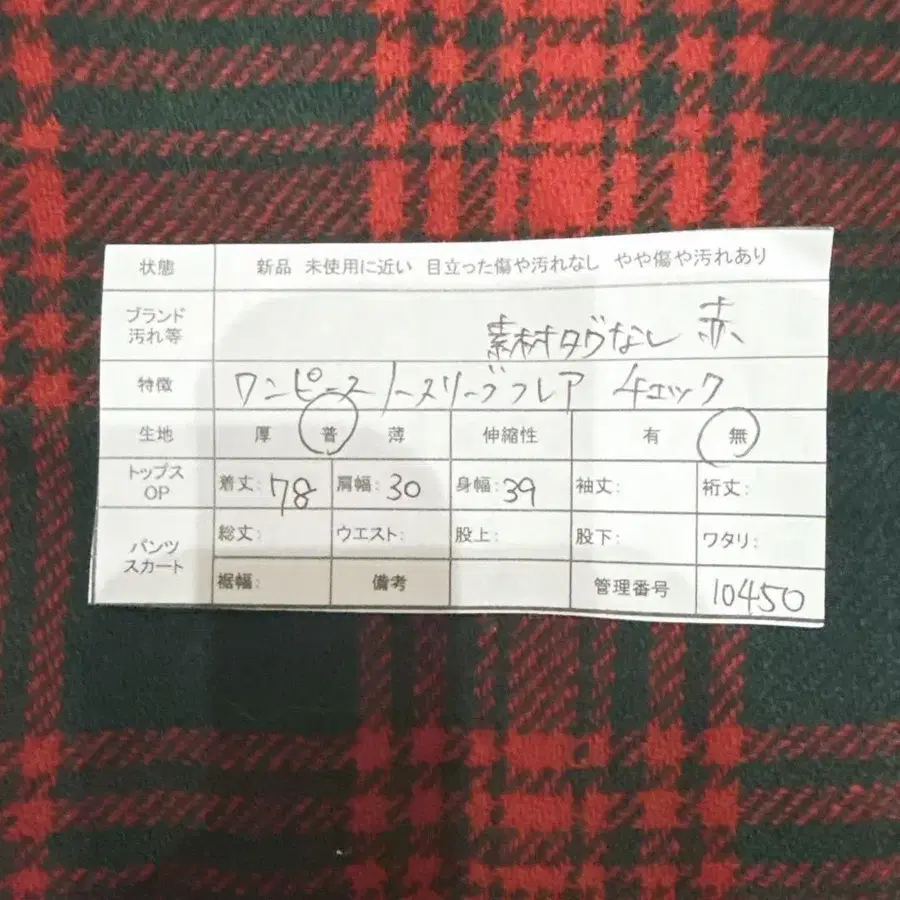 状態 新品 未使用に近い 目立った傷や汚れなし やや傷や汚れあり
ブランド
汚れ等 素材タグなし 赤
特徴 ワンピース ノースリーブ フレア チェック
生地 厚 普 薄 伸縮性 有 無
トップス
OP 着丈: 78 肩幅: 30 身幅: 39 袖丈: 裄丈:
パンツ
スカート 総丈: ウエスト: 股上: 股下: ワタリ:
裾幅: 備考 管理番号 10450